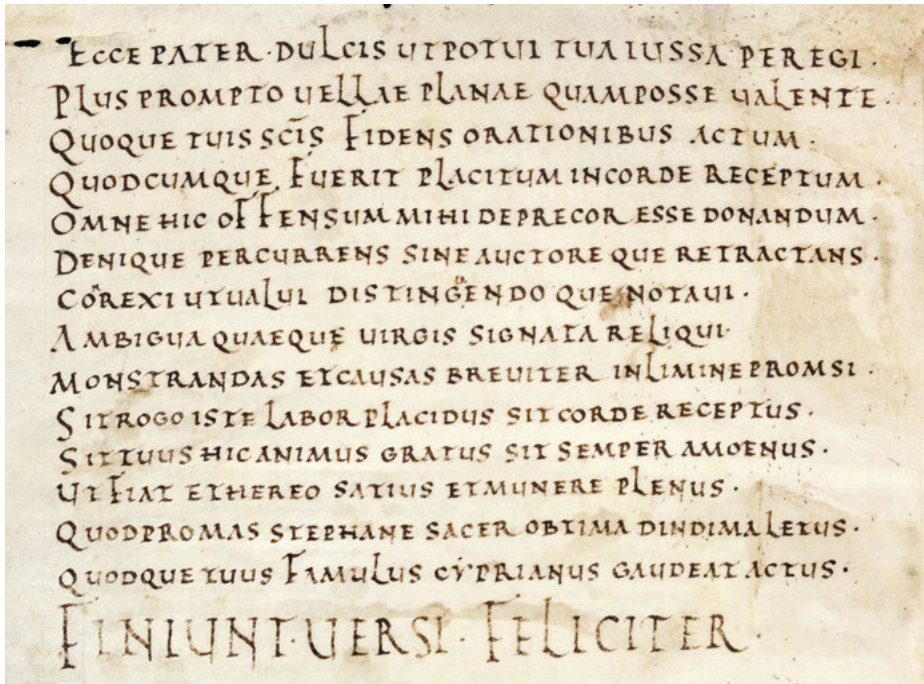 ECCE PATER · DULCIS UT POTUI TUA IUSSA PEREGI ·
PLUS PROMPTO UELLAE PLANAE QUAM POSSE UALENTE ·
QUOQUE TUIS SC̄IS FIDENS ORATIONIBUS ACTUM ·
QUODCUMQUE FUERIT PLACITUM IN CORDE RECEPTUM ·
OMNE HIC OFFENSUM MIHI DEPRECOR ESSE DONANDUM ·
DENIQUE PERCURRENS SINE AUCTORE QUE RETRACTANS ·
CORREXI UT UALUI DISTINGUENDO QUE NOTAUI ·
AMBIGUA QUAEQUE UIRGIS SIGNATA RELIQUI
MONSTRANDAS ET CAUSAS BREUITER IN LIMINE PROMSI ·
SIT ROGO ISTE LABOR PLACIDUS SIT CORDE RECEPTUS ·
SIT TUUS HIC ANIMUS GRATUS SIT SEMPER AMOENUS ·
UT FIAT ETHEREO SATIUS ET MUNERE PLENUS ·
QUOD PROMAS STEPHANE SACER OBTIMA DINDIMA LETUS ·
QUODQUE TUUS FAMULUS CYPRIANUS GAUDEAT ACTUS ·
FINIUNT · UERSI · FELICITER ·